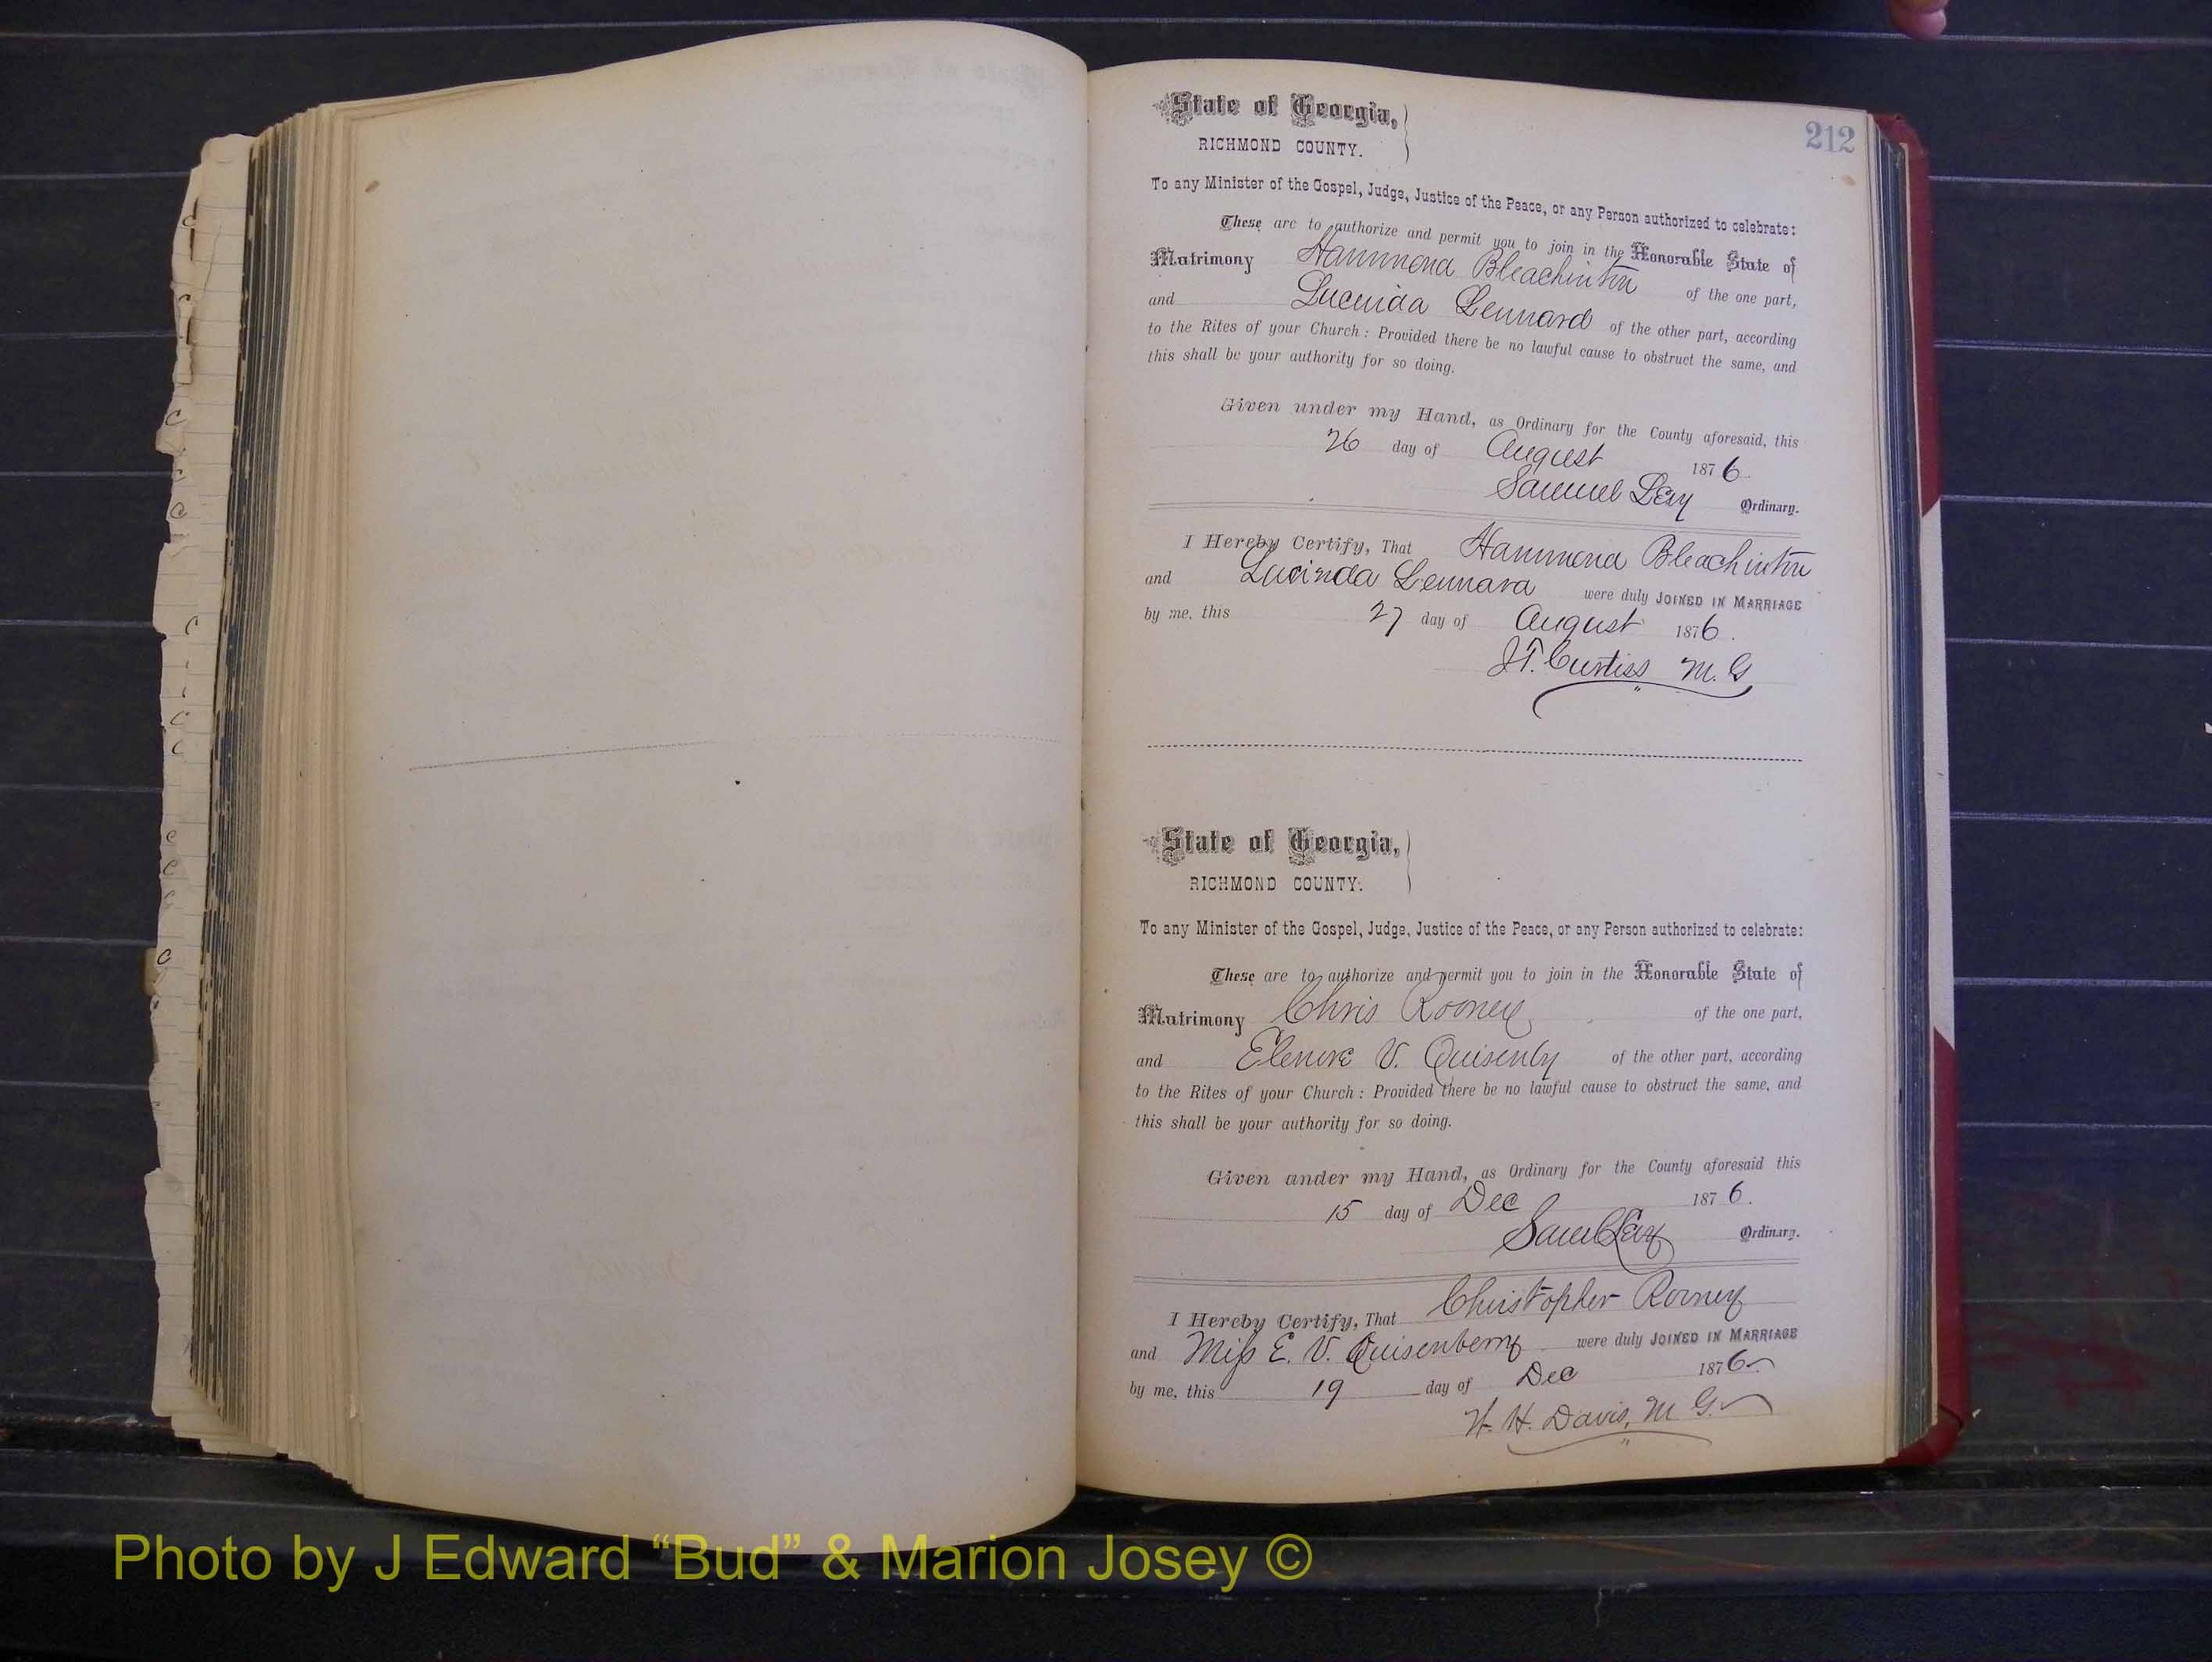 State of Georgia,
RICHMOND COUNTY.
212
To any Minister of the Gospel, Judge, Justice of the Peace, or any Person authorized to celebrate:
These are to authorize and permit you to join in the Honorable State of
Matrimony Hammond Bleachinton of the one part,
and Lucinda Lennard of the other part, according
to the Rites of your Church: Provided there be no lawful cause to obstruct the same, and
this shall be your authority for so doing.
Given under my Hand, as Ordinary for the County aforesaid, this
26 day of August 1876.
Samuel Levy Ordinary.
I Hereby Certify, That Hammond Bleachinton
and Lucinda Lennard were duly JOINED IN MARRIAGE
by me, this 27 day of August 1876.
J.T. Curtiss M.G
State of Georgia,
RICHMOND COUNTY.
To any Minister of the Gospel, Judge, Justice of the Peace, or any Person authorized to celebrate:
These are to authorize and permit you to join in the Honorable State of
Matrimony Chris Rooney of the one part,
and Elenore V. Quisenby of the other part, according
to the Rites of your Church: Provided there be no lawful cause to obstruct the same, and
this shall be your authority for so doing.
Given under my Hand, as Ordinary for the County aforesaid this
15 day of Dec 1876.
Saml Levy Ordinary.
I Hereby Certify, That Christopher Rooney
and Miss E. V. Quisenberry were duly JOINED IN MARRIAGE
by me, this 19 day of Dec 1876
W. H. Davis, M G.
Photo by J Edward “Bud” & Marion Josey ©